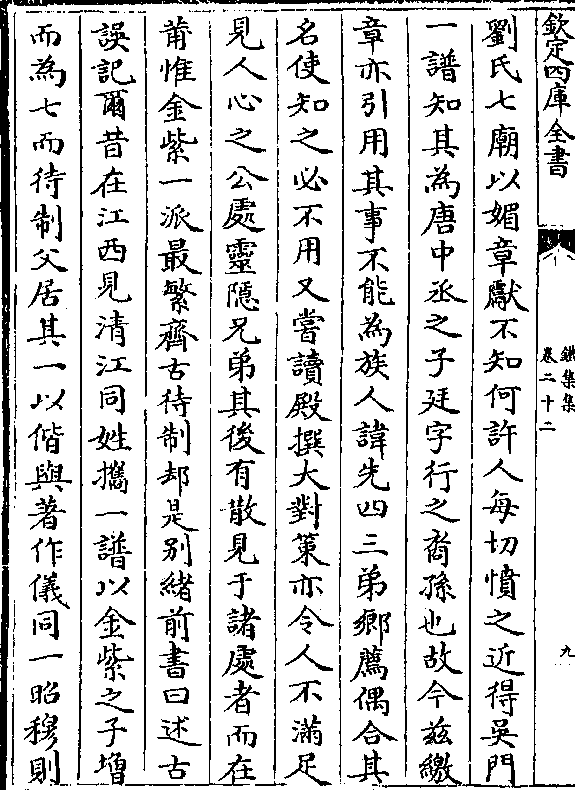 欽定四庫全書
卷二十二
九
劉氏七廟以媚章獻不知何許人每切憤之近得吳門
一譜知其為唐中丞之子廷字行之裔孫也故今兹繳
章亦引用其事不能為族人諱先四三弟鄉薦偶合其
名使知之必不用又嘗讀殿撰大對策亦令人不滿足
見人心之公處靈隱兄弟其後有散見于諸處者而在
莆惟金紫一派最繁齊古待制却是别緒前書曰述古
誤記爾昔在江西見清江同姓攜一譜以金紫之子增
而為七而待制父居其一以偕與著作儀同一昭穆則